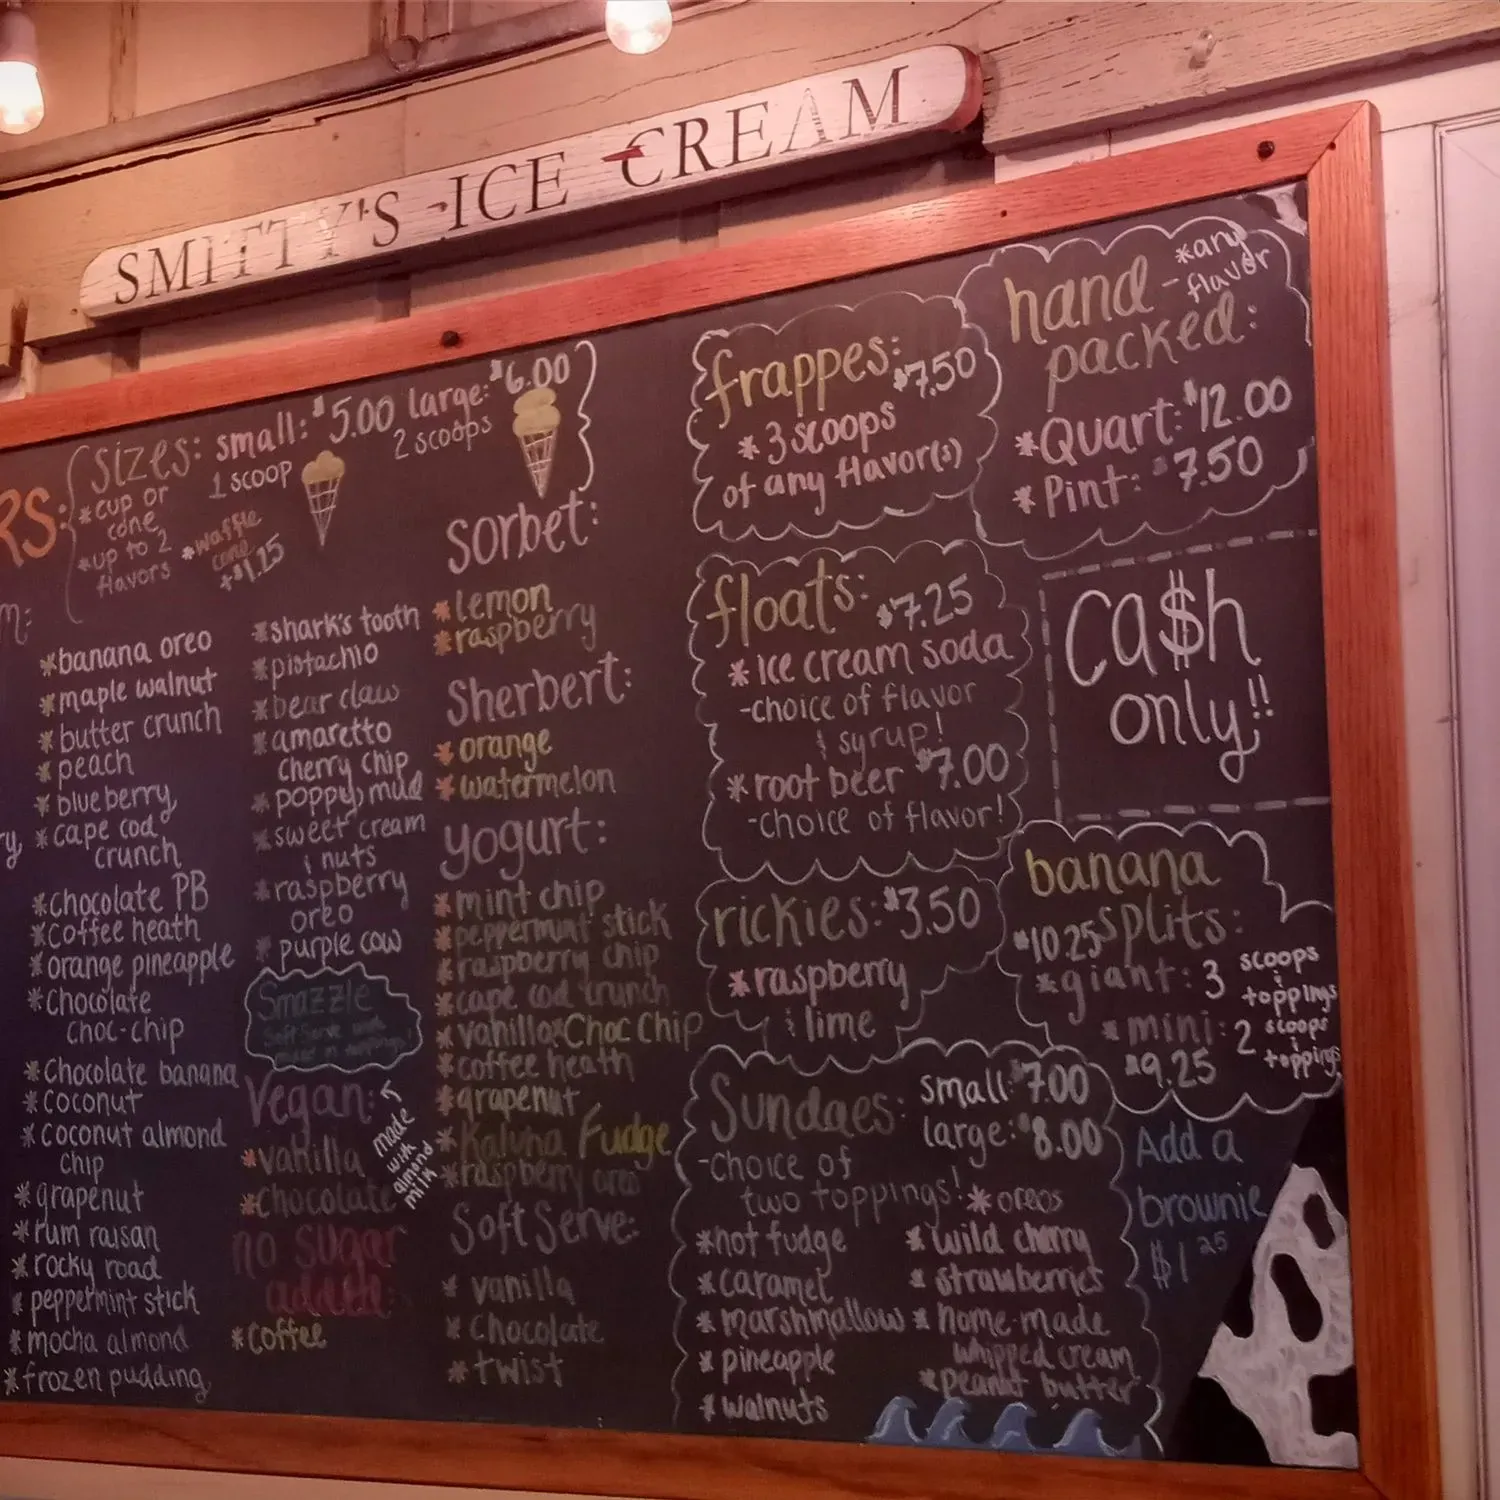 SMITTY'S ICE CREAM
RS:
sizes: small: $5.00 large: $6.00
1 scoop
2 scoops
*cup or
cone
*up to 2
flavors
*waffle
cone
+$1.25
m:
*banana oreo
*maple walnut
*butter crunch
*peach
*blueberry
*cape cod
crunch
*chocolate PB
*coffee heath
*orange pineapple
*chocolate
choc-chip
*chocolate banana
*coconut
*coconut almond
chip
*grapenut
*rum raisan
*rocky road
*peppermint stick
*mocha almond
*frozen pudding
*shark's tooth
*pistachio
*bear claw
*amaretto
cherry chip
*poppy mud
*sweet cream
& nuts
*raspberry
oreo
*purple cow
Smazzle
Soft Serve with
Vegan:
made
with
almond
milk
*vanilla
*chocolate
no sugar
added:
*coffee
sorbet:
*lemon
*raspberry
Sherbert:
*orange
*watermelon
yogurt:
*mint chip
*peppermint stick
*raspberry chip
*cape cod crunch
*vanilla Choc Chip
*coffee heath
*grapenut
*Kaluha Fudge
*raspberry oreo
Soft Serve:
*vanilla
*chocolate
*twist
frappes:
$7.50
*3 scoops
of any flavor(s)
floats:
$7.25
*ice cream soda
-choice of flavor
& syrup!
*root beer $7.00
-choice of flavor!
rickies: $3.50
*raspberry
& lime
Sundaes: small: $7.00
large: $8.00
-choice of
two toppings!
*hot fudge
*caramel
*marshmallow
*pineapple
*walnuts
*oreos
*wild cherry
*strawberries
*home-made
whipped cream
*peanut butter
hand - *any
flavor
packed:
*Quart: $12.00
*Pint: $7.50
ca$h
only!!
banana
$10.25 splits:
*giant: 3 scoops
& toppings
*mini: 2 scoops
& toppings
$9.25
Add a
brownie
$1 25